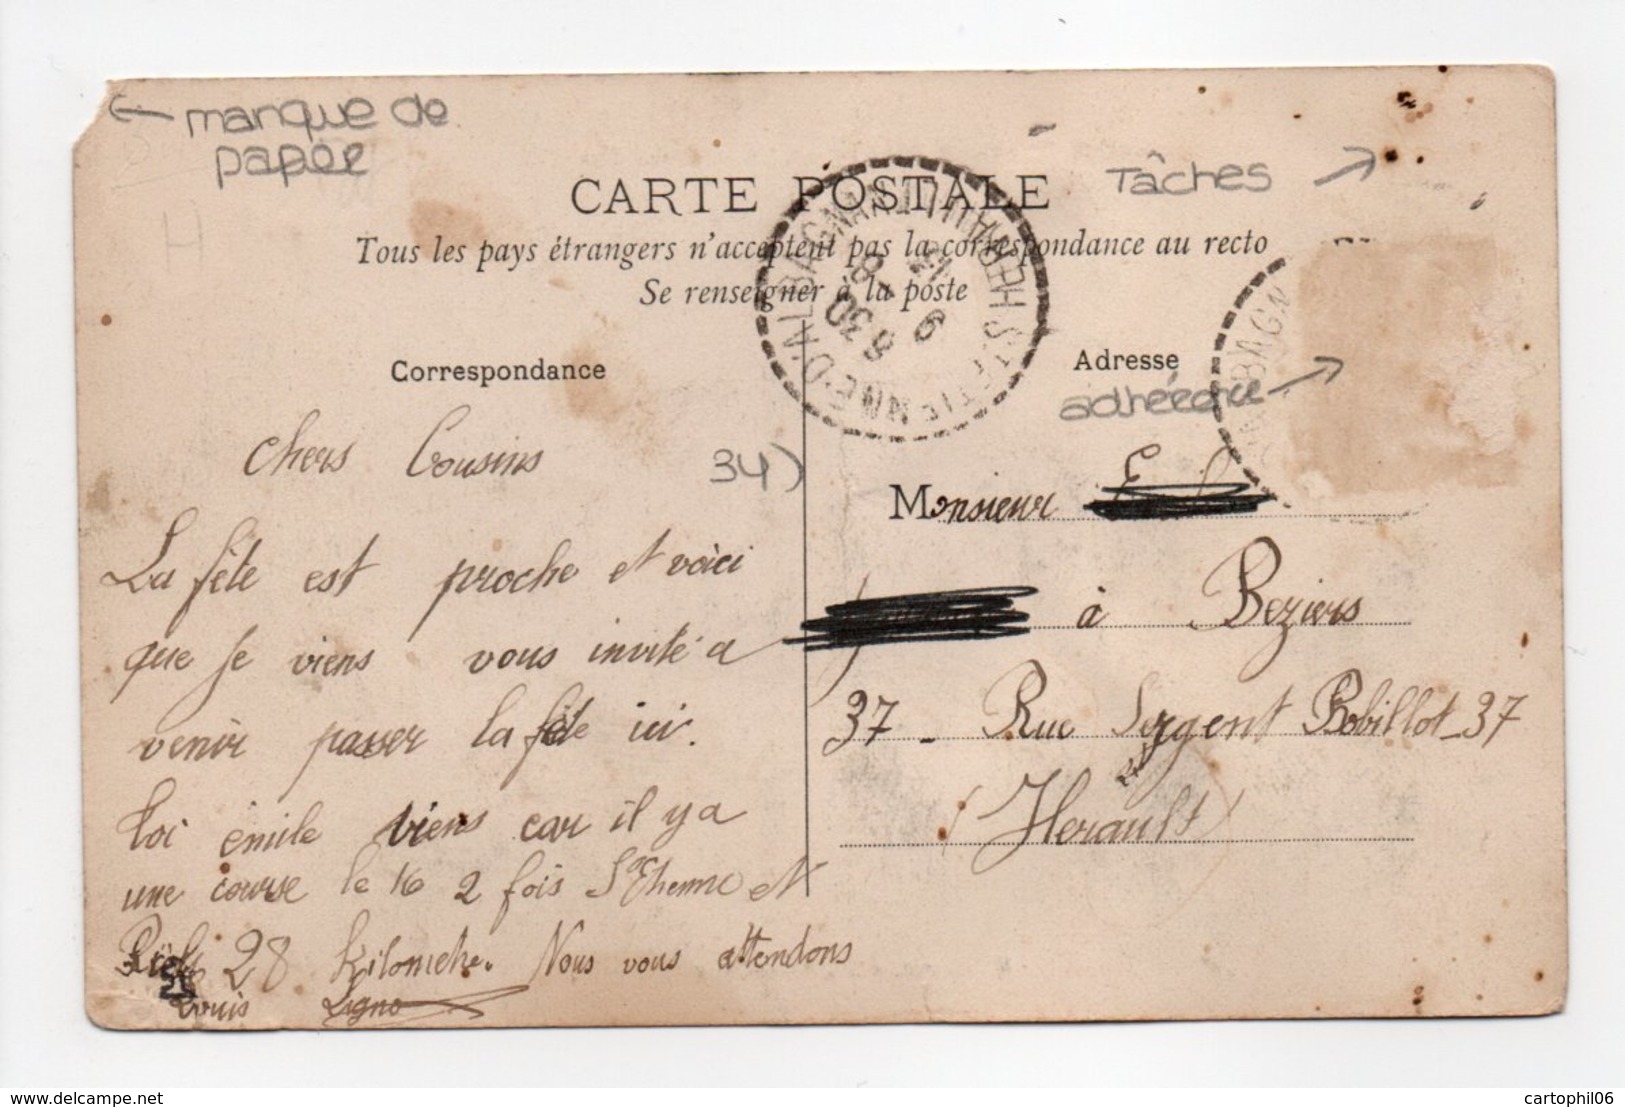 ← manque de
papee
H
Tâches →
CARTE POSTALE
Tous les pays étrangers n'acceptent pas la correspondance au recto
Se renseigner à la poste
ST ETIENNE-D'ALBAGNAN HERAULT
8 30
6
BAGN
Correspondance
Adresse
adhéence →
34)
chers Cousins
La fête est proche et voici
que je viens vous invité a
venir passer la fête ici.
toi émile viens car il y a
une course le 16 2 fois St Etienne et
28 kilometre. Nous vous attendons
Louis
Monsieur
à Beziers
37 - Rue Sergent Bobillot - 37
(Herault)
delcampe.net
cartophil06